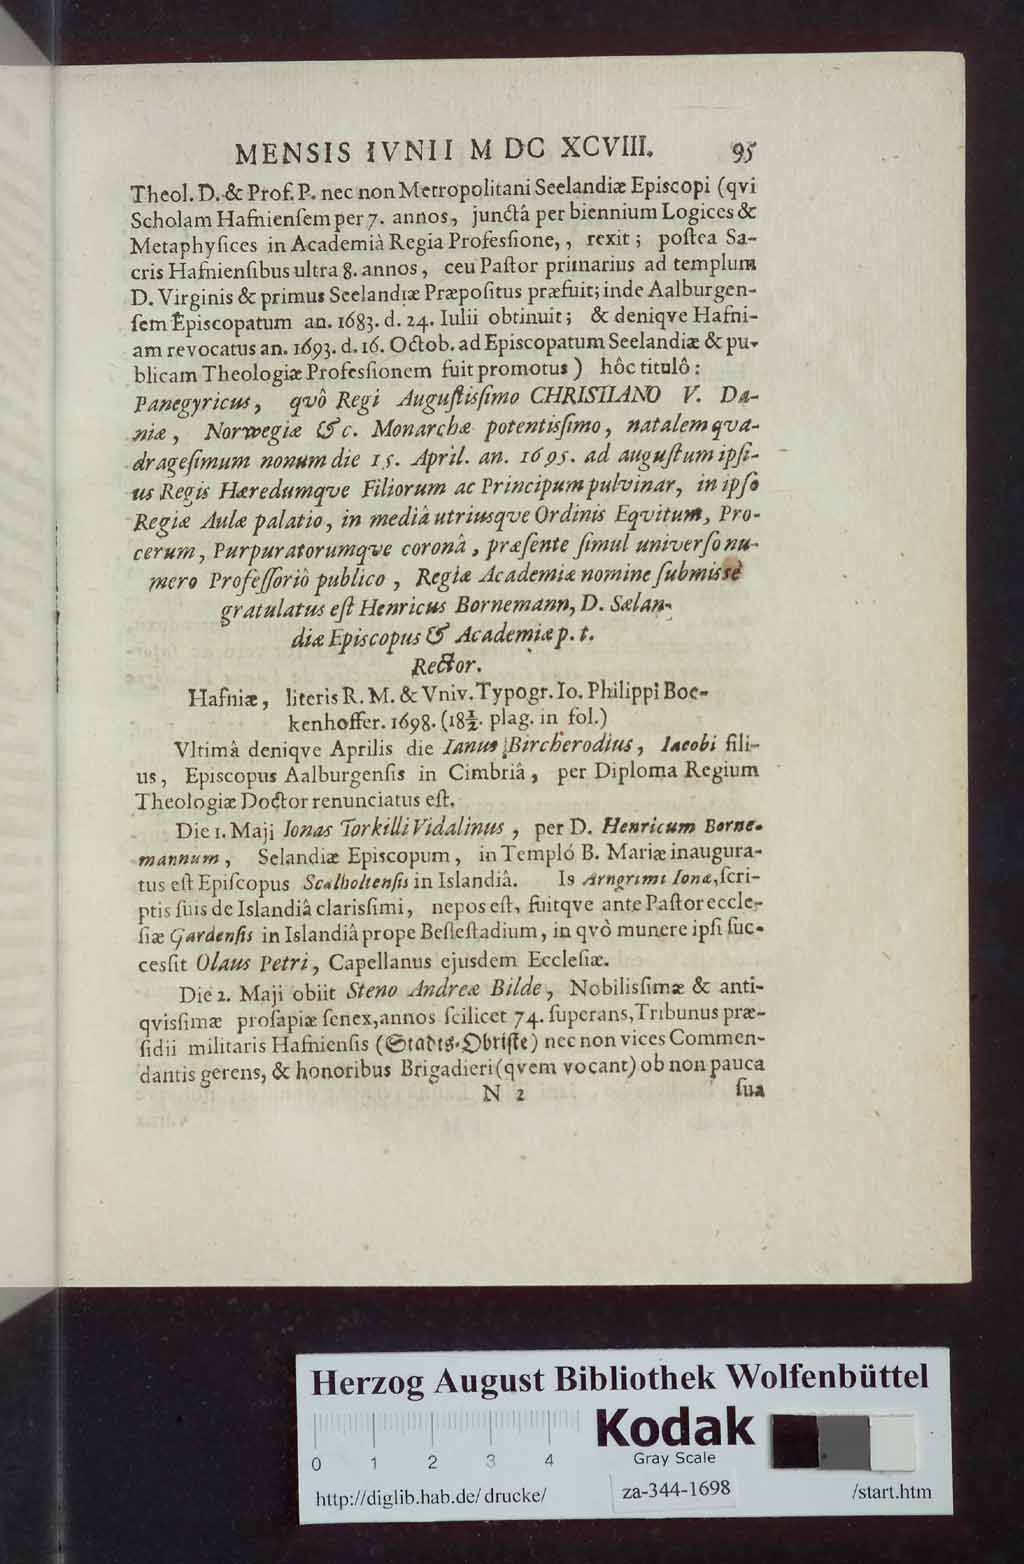 MENSIS IVNII M DC XCVIII. 95
Theol. D. & Prof. P. nec non Metropolitani Seelandiæ Episcopi (qvi
Scholam Hafnienſem per 7. annos, junctâ per biennium Logices &
Metaphyſices in Academiâ Regia Profesſione, , rexit ; poſtea Sa-
cris Hafnienſibus ultra 8. annos , ceu Paſtor primarius ad templum
D. Virginis & primus Seelandiæ Præpoſitus præfuit; inde Aalburgen-
ſem Epiſcopatum an. 1683. d. 24. Iulii obtinuit ; & deniqve Hafni-
am revocatus an. 1693. d. 16. Octob. ad Episcopatum Seelandiæ & pu-
blicam Theologiæ Profesſionem fuit promotus ) hôc titulô :
Panegyricus , qvô Regi Auguſtisſimo CHRISTIANO V. Da-
niæ , Norwegiæ &c. Monarchæ potentisſimo , natalem qva-
drageſimum nonum die 15. April. an. 1695. ad auguſtum ipſi-
us Regis Hæredumqve Filiorum ac Principum pulvinar, in ipſo
Regiæ Aulæ palatio, in mediâ utriusqve Ordinis Eqvitum, Pro-
cerum, Purpuratorumqve coronâ , præſente ſimul univerſo nu-
mero Profeſſoriô publico , Regiæ Academiæ nomine ſubmissè
gratulatus eſt Henricus Bornemann, D. Sælan-
diæ Episcopus & Academiæ p. t.
Rector.
Hafniæ, literis R. M. & Vniv. Typogr. Io. Philippi Boc-
kenhoffer. 1698. (18½. plag. in fol.)
Vltimâ deniqve Aprilis die Ianus Bircherodius, Iacobi fili-
us, Episcopus Aalburgenſis in Cimbriâ, per Diploma Regium
Theologiæ Doctor renunciatus eſt.
Die 1. Maji Ionas Torkilli Vidalinus , per D. Henricum Borne-
mannum , Selandiæ Episcopum , in Templô B. Mariæ inaugura-
tus eſt Epiſcopus Scalholtenſis in Islandiâ. Is Arngrimi Ionæ, ſcri-
ptis ſuis de Islandiâ clarisſimi, nepos eſt, fuitqve ante Paſtor eccle-
ſiæ Gardenſis in Islandiâ prope Beſleſtadium, in qvò munere ipſi ſuc-
cesſit Olaus Petri, Capellanus ejusdem Eccleſiæ.
Die 2. Maji obiit Steno Andreæ Bilde, Nobilisſimæ & anti-
qvisſimæ proſapiæ ſenex, annos ſcilicet 74. ſuperans, Tribunus præ-
ſidii militaris Hafnienſis (Stadts-Obriſte) nec non vices Commen-
dantis gerens, & honoribus Brigadieri (qvem vocant) ob non pauca
N 2 ſua
Herzog August Bibliothek Wolfenbüttel
Kodak
Gray Scale
0 1 2 3 4
http://diglib.hab.de/drucke/ za-344-1698 /start.htm